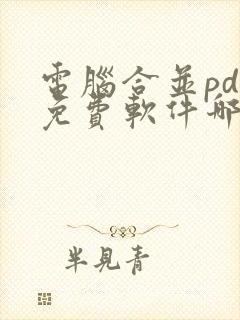 電腦合並pd
免費軟件哪
半見青